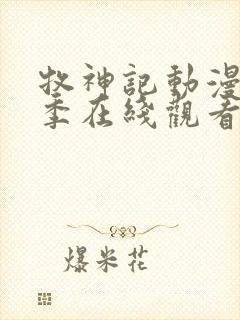 牧神記動漫
季在綫觀看
爆米花